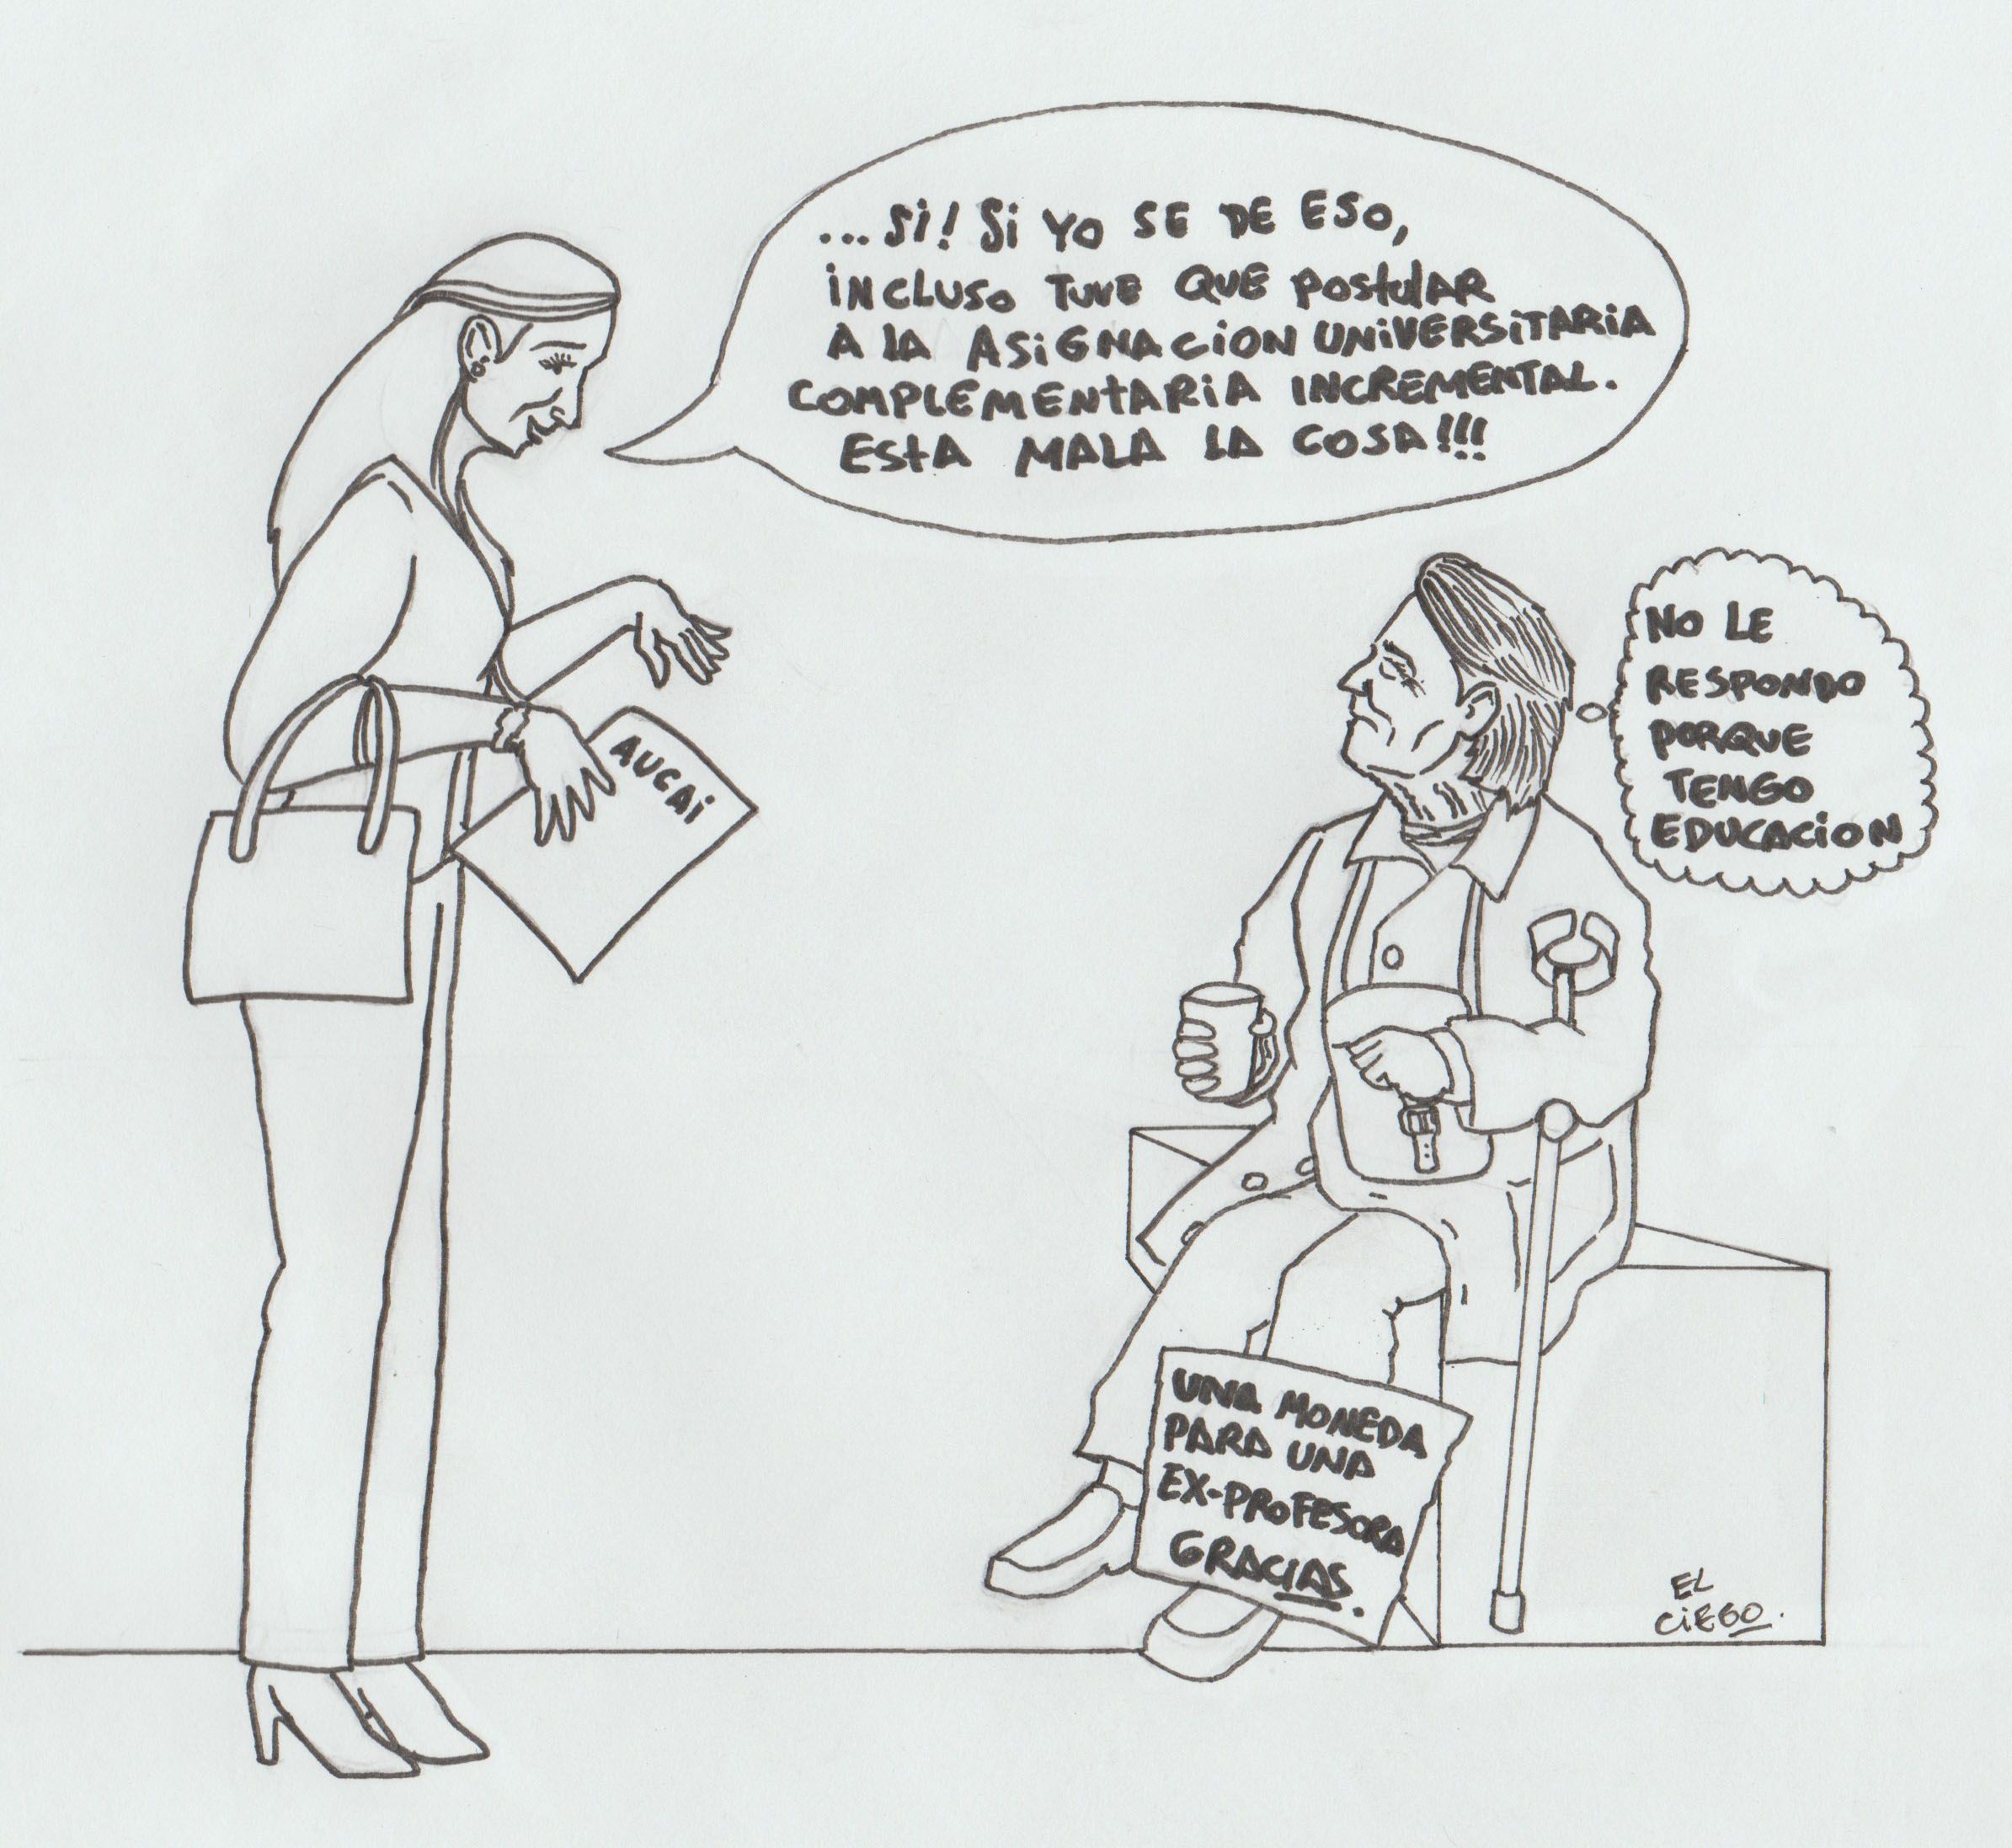 ...Si! Si YO SE DE ESO,
iNCLUSO TUVE QUE POStulAR
A lA ASiGNACiON UNiVERSiTARiA
COMPLEMENtARiA INCREMENTAL.
EStA MALA LA COSA!!!
NO LE
RESPONDO
PORQUE
TENGO
EDUCACiON
AUCAi
UNA MONEDA
PARA UNA
EX-PROFESORA
GRACIAS.
EL
CiEGO.